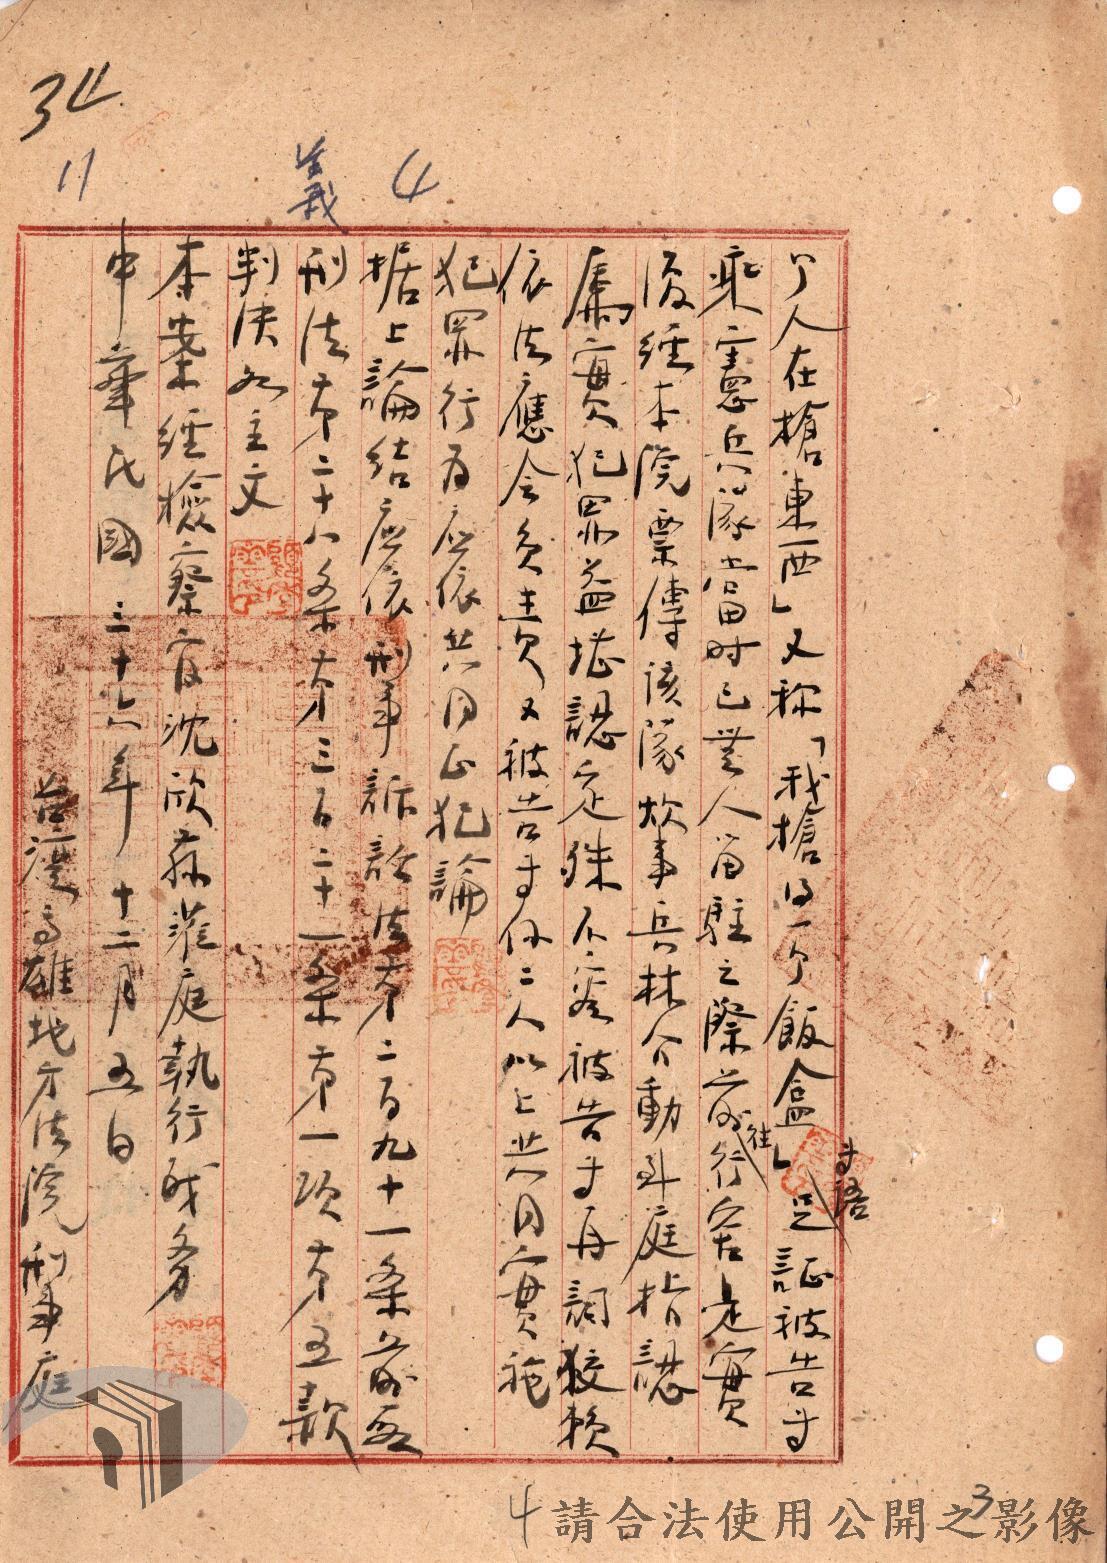 34
11
義
4
个人在槍東西」又称「我槍得一个飯盒」等語足証被告等
乘憲兵隊當时已無人留駐之際前往行奪是實
復經本院票傳該隊炊事兵林介動到庭指認
屬實犯罪益堪認定殊不容被告等再詞狡賴
依法應令負責又被告等係二人以上共同實施
犯罪行為应依共同正犯論
据上論結应依刑事訴訟法第二百九十一条前段
刑法第二十八条第三百二十一条第一項第五款
判決如主文
本案經檢察官沈欣蓀蒞庭執行职务
中華民國三十六年十二月五日
臺灣高雄地方法院刑事庭
4
3
請合法使用公開之影像